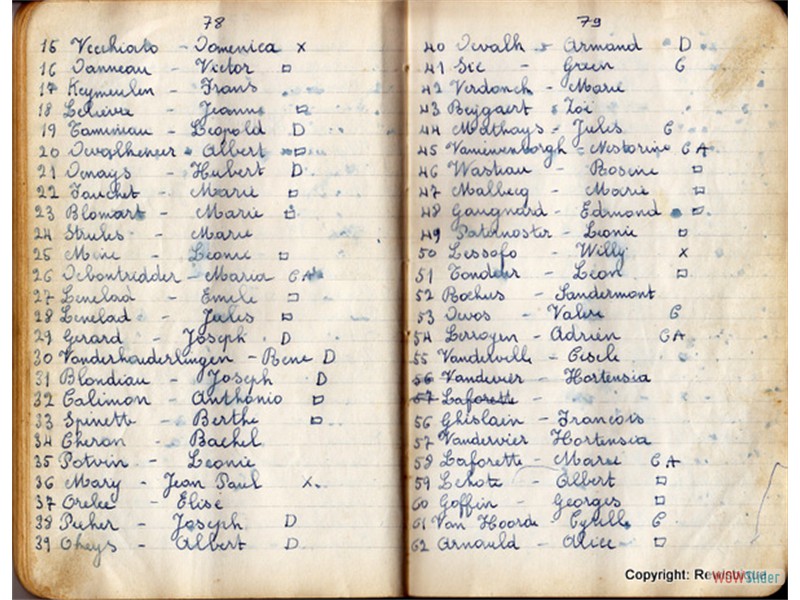 78
15 Vecchiato - Domenica x
16 Danneau - Victor □
17 Keymeulen - Frans
18 Jeanne □
19 Taminiau - Leopold D
20 - Albert □
21 Denays - Hubert D
22 Fauchet - Marie □
23 Blomart - Marie □
24 - Marie
25 - Leonie □
26 Debontridder - Maria C A
27 Lenelad - Emile □
28 Lenelad - Jules □
29 Gerard - Joseph D
30 - Rene D
31 Blondiau - Joseph D
32 Calimon - Anthonio □
33 Spinette - Berthe □
34 Cheron - Rachel
35 Potvin - Leonie
36 Mary - Jean Paul X
37 - Elise
38 - Joseph D
39 Gheys - Albert D
79
40 - Armand D
41 - Green C
42 Verdonck - Marie
43 Beygaert - Zoé
44 Mathays - Jules C
45 - Nestorine C A
46 Wastiau - Rosine □
47 Malbecq - Marie □
48 Gaugnard - Edmond □
49 Paternoster - Leonie □
50 Lessofo - Willy x
51 - Léon □
52 Rochus - Sandermont
53 Devos - Valere C
54 Lerroyen - Adrien C A
55 Vandeville - Gisele
56 Vandevier - Hortensia
57 Laforette -
56 Ghislain - François
57 Vandervier Hortensia
58 Laforette - Marie C A
59 Lehote - Albert □
60 Goffin - Georges □
61 Van Hoorde - Cyrille C
62 Arnauld - Alice □
Copyright:
WOWSlider